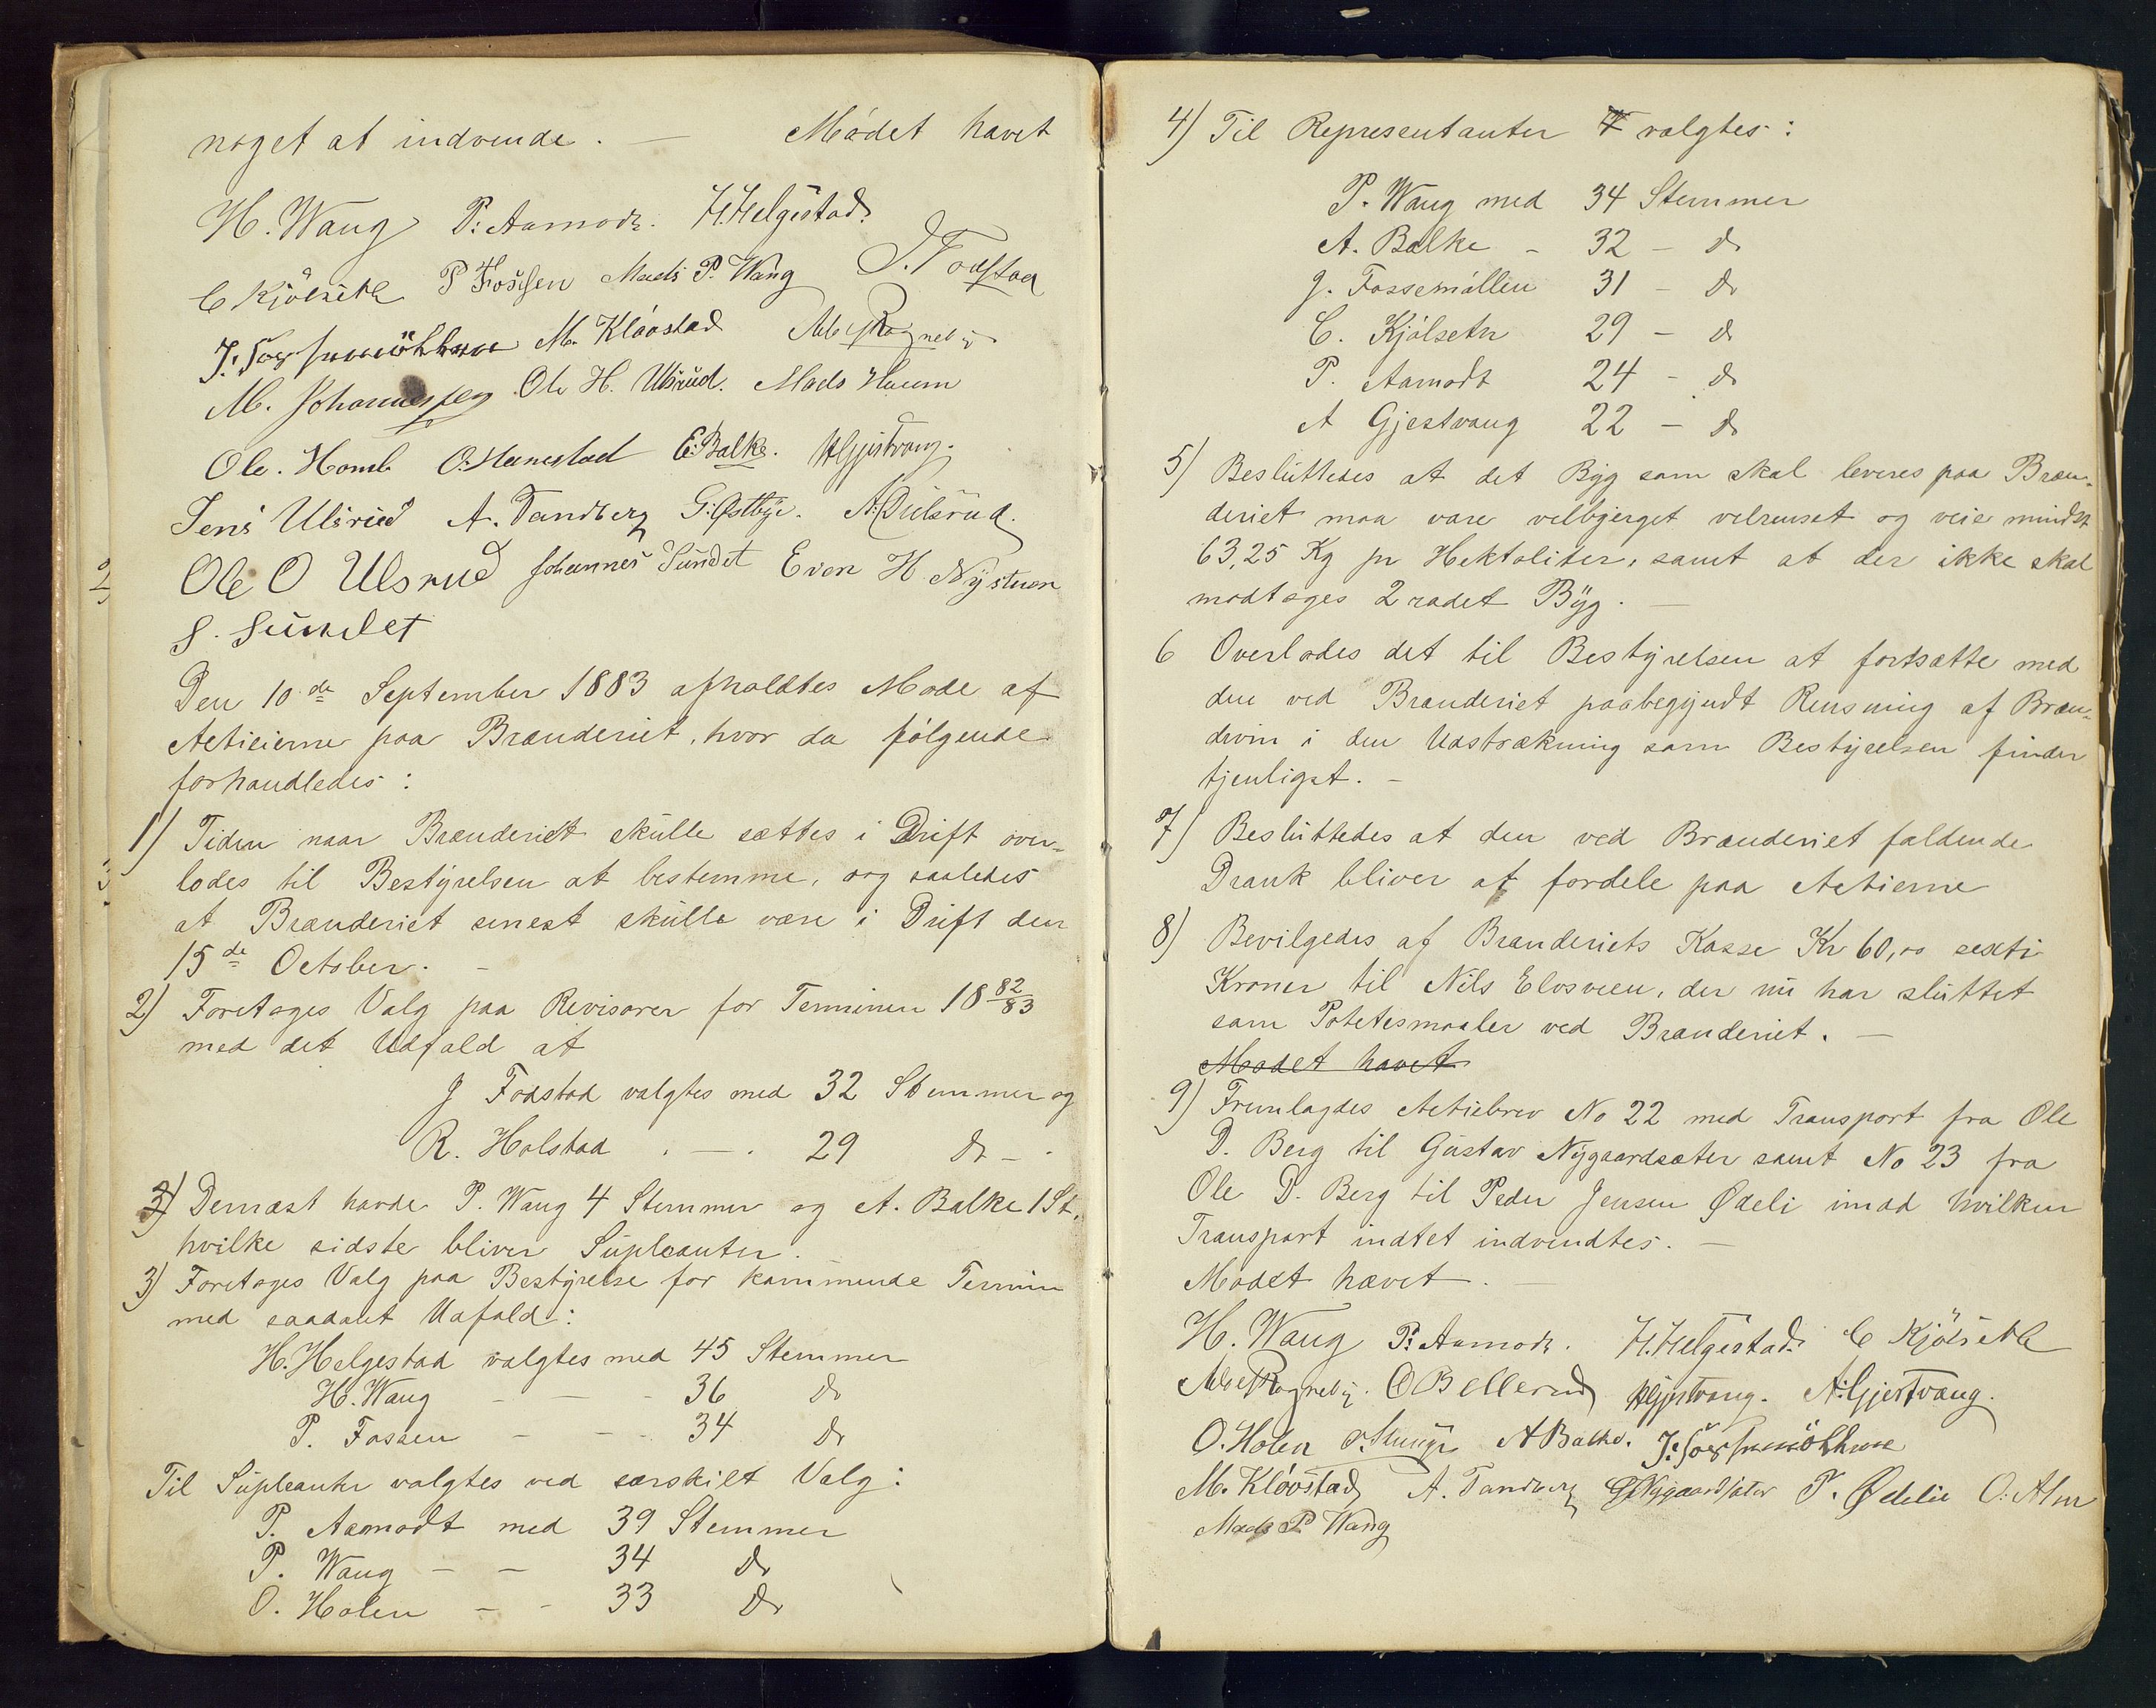 noget at indvende. — Mödet hævet
H. Wang P. Aamodt. H. Helgestad
C Kjölseth P Fossen Mads P. Wang J. Fodstad
J. Fossemöllen M. Klövstad
M. Johannessen Ole H. Ulsrud. Mads Haum
Ole. Homb O. Hanestad E. Balke. H Gjestvang.
Jens Ulsrud A. Tandberg G. Østbye. A. Dulsrud.
Ole O Ulsrud Johannes Sundet Even H Nystuen
S. Sundet
Den 10de September 1883 afholdtes Møde af
Actieierne paa Brænderiet, hvor da fölgende
forhandledes:
1) Tiden naar Brænderiet skulle sættes i Drift over-
lodes til Bestyrelsen at bestemme, og saaledes
at Brænderiet senest skulle være i Drift den
15de October. —
2) Foretoges Valg paa Revisorer for Terminen 18 82/83
med det Udfald at
J Fodstad valgtes med 32 Stemmer og
R. Holstad . — . 29 do — .
3) Dernæst havde P. Wang 4 Stemmer og A. Balke 1 St.
hvilke sidste bliver Supleanter.
3) Foretoges Valg paa Bestyrelse for kommende Termin
med saadant Udfald:
H. Helgestad valgtes med 45 Stemmer
H. Wang — — - 36 do
P. Fossen — — - 34 do
Til Supleanter valgtes ved særskilt Valg:
P. Aamodt med 39 Stemmer
P. Wang — — 34 do
O. Holen — - 33 do
4) Til Representanter valgtes:
P. Wang med 34 Stemmer
A. Balke - 32 - do
J. Fossemöllen 31 - do
C. Kjölseth 29 - do
P. Aamodt 24 - do
A Gjestvang 22 - do
5) Besluttedes at det Byg som skal leveres paa Bræn-
deriet maa være velbjerget velrenset og veie mindst
63,25 Kg pr Hektoliter, samt at der ikke skal
modtages 2 radet Byg. —
6 Overlodes det til Bestyrelsen at fortsætte med
den ved Brænderiet paabegyndt Rensning af Bræn-
devin i den Udstrækning som Bestyrelsen finder
tjenligst. —
7) Besluttedes at den ved Brænderiet faldende
Drank bliver at fordele paa Actierne
8) Bevilgedes af Brænderiets Kasse Kr 60,00 sexti
Kroner til Nils Elosveen, der nu har sluttet
som Potetesmaaler ved Brænderiet. —
Mødet hævet
9) Fremlagdes Actiebrev No 22 med Transport fra Ole
D. Berg til Gustav Nygaardsæter samt No 23 fra
Ole D. Berg til Peder Jensen Ødeli imod hvilken
Transport indtet indvendtes. —
Mødet hævet. —
H. Wang P. Aamodt. H. Helgestad C Kjölseth
O Bellerud H Gjestvang. A. Gjestvang.
O. Holen A Balke. J. Fossemöllen
M. Klövstad A. Tandberg G Nygaardsæter P. Ødelie O. Alm
Mads P Wang